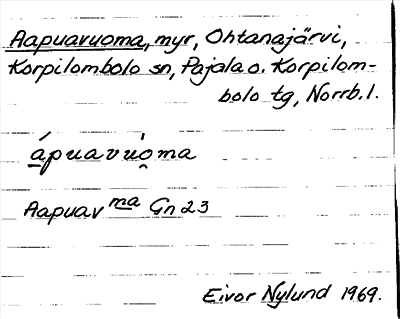 Aapuavuoma, myr, Ohtanajärvi,
Korpilombolo sn, Pajala o. Korpilom-
bolo tg, Norrb. l.
á̱puavuȯ̭ma
Aapuav ma Gn 23
Eivor Nylund 1969.